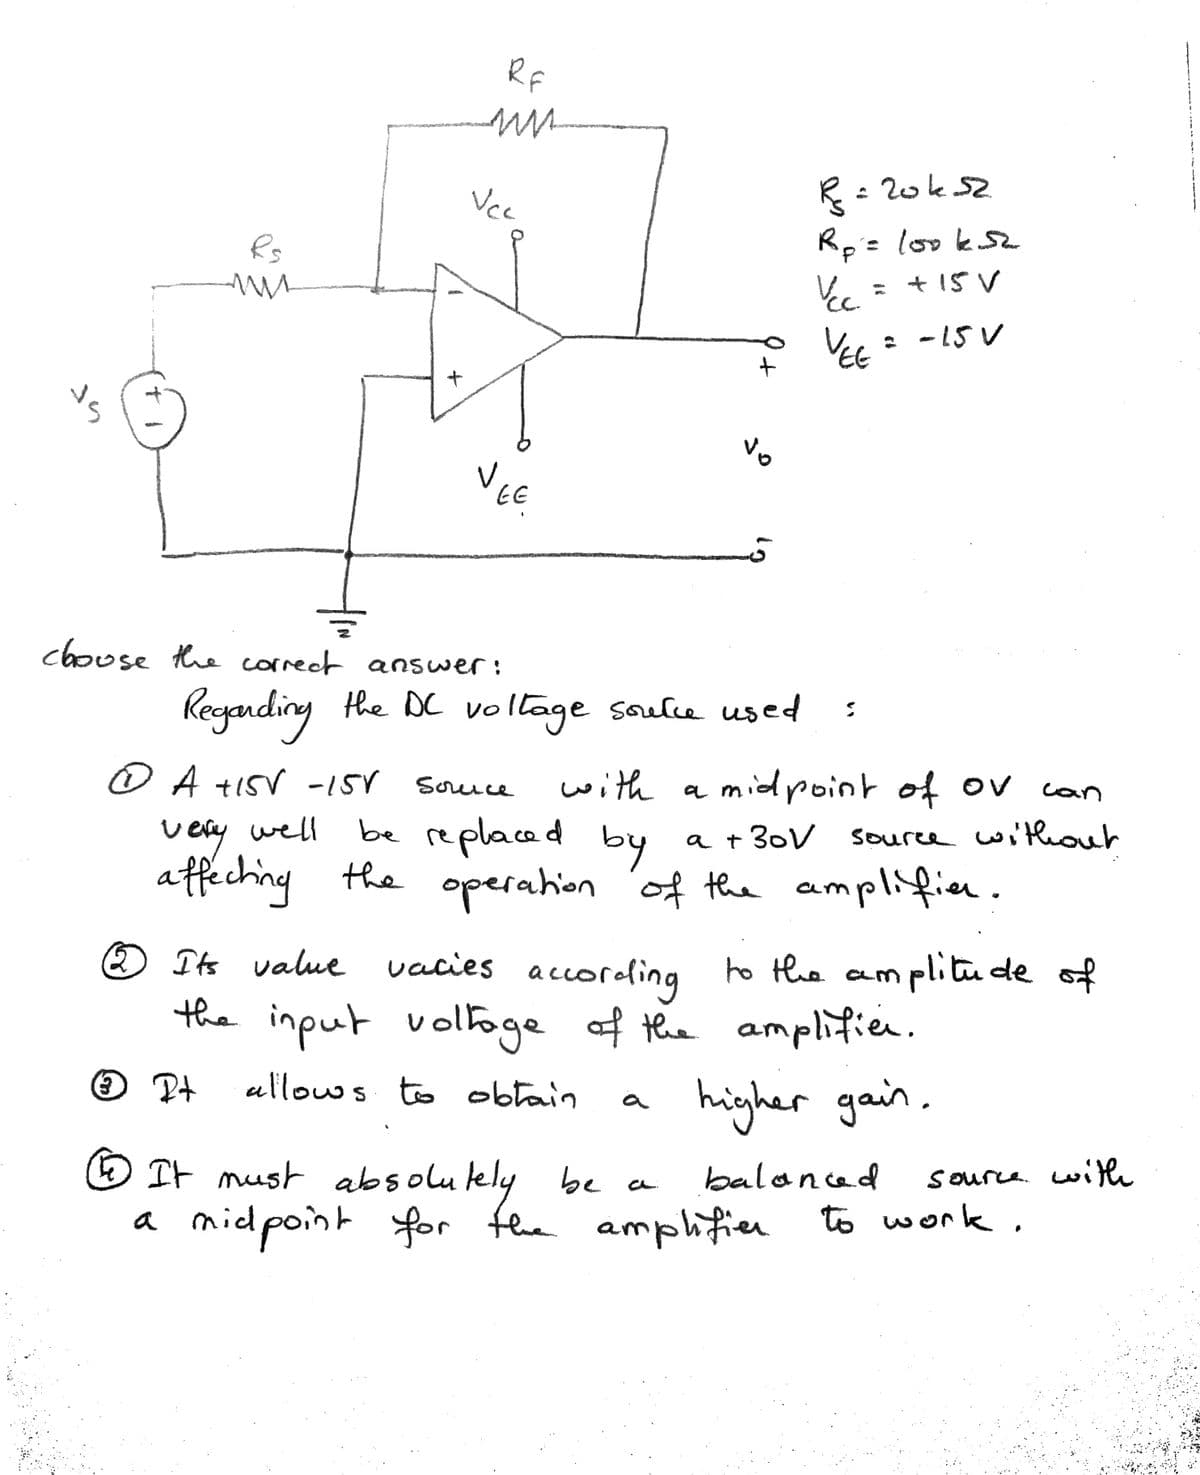 RF
Vcc
Rs
Rs = 20kΩ
Rp = 100kΩ
Vcc = +15V
VEE = -15V
-
+
+
-
Vs
+
Vo
VEE
choose the correct answer:
Regarding the DC voltage source used :
① A +15V -15V source with a midpoint of 0V can
very well be replaced by a +30V source without
affecting the operation of the amplifier.
② Its value varies according to the amplitude of
the input voltage of the amplifier.
③ It allows to obtain a higher gain.
④ It must absolutely be a balanced source with
a midpoint for the amplifier to work.